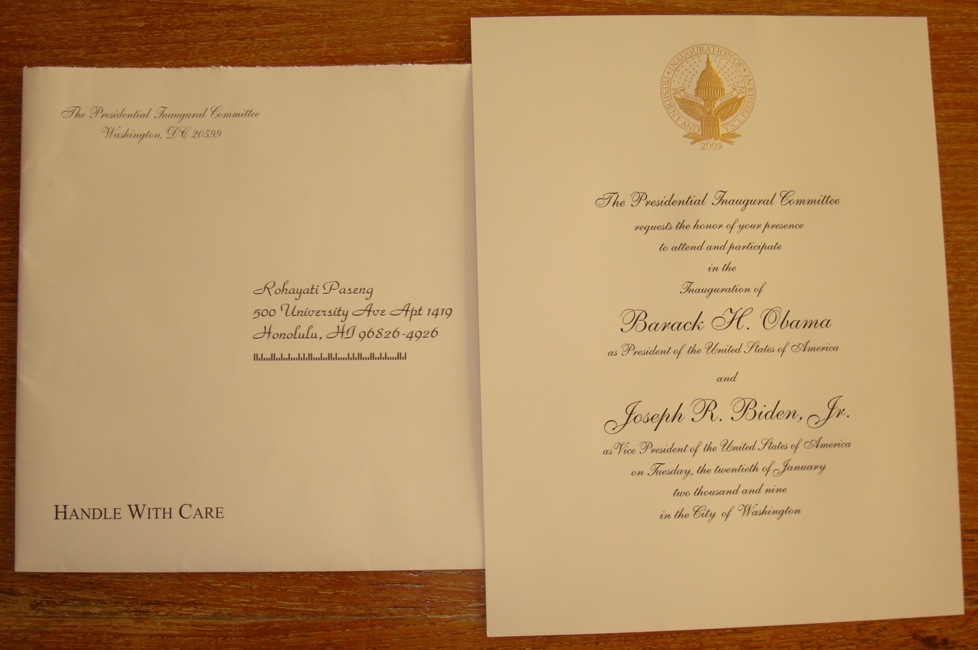 The Presidential Inaugural Committee
Washington, DC 20599
Rohayati Paseng
500 University Ave Apt 1419
Honolulu, HI 96826-4926
HANDLE WITH CARE
INAUGURATION OF PRESIDENT AND VICE PRESIDENT
2009
The Presidential Inaugural Committee
requests the honor of your presence
to attend and participate
in the
Inauguration of
Barack H. Obama
as President of the United States of America
and
Joseph R. Biden, Jr.
as Vice President of the United States of America
on Tuesday, the twentieth of January
two thousand and nine
in the City of Washington